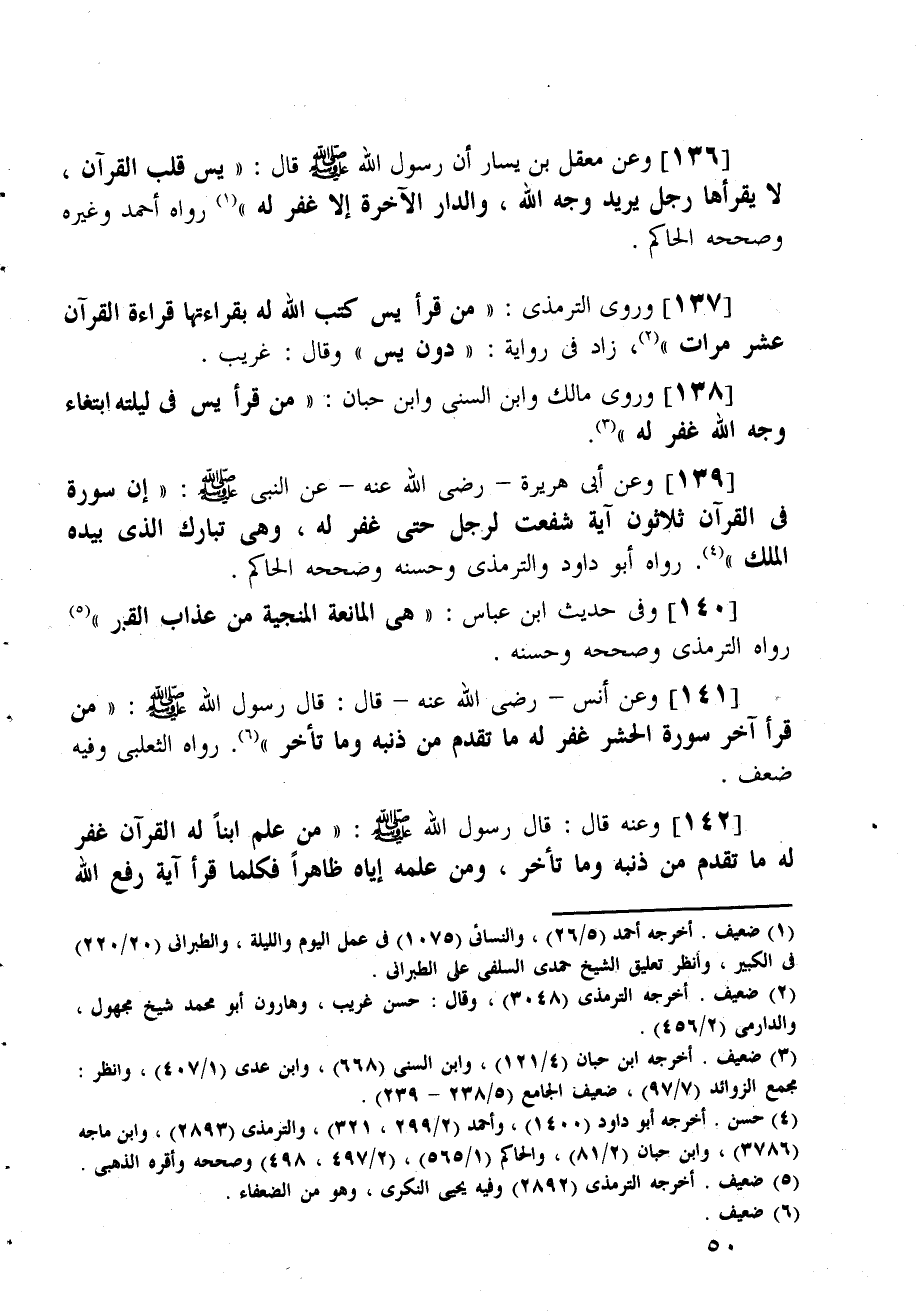 [١٣٦] وعن معقل بن يسار أن رسول الله ﷺ قال : « يس قلب القرآن ،
لا يقرأها رجل يريد وجه الله ، والدار الآخرة إلا غفر له »(١) رواه أحمد وغيره
وصححه الحاكم .
[١٣٧] وروى الترمذى : « من قرأ يس كتب الله له بقراءتها قراءة القرآن
عشر مرات »(٢)، زاد فى رواية : « دون يس » وقال : غريب .
[١٣٨] وروى مالك وابن السنى وابن حبان : « من قرأ يس فى ليلته ابتغاء
وجه الله غفر له »(٣).
[١٣٩] وعن أبى هريرة – رضى الله عنه – عن النبى ﷺ : « إن سورة
فى القرآن ثلاثون آية شفعت لرجل حتى غفر له ، وهى تبارك الذى بيده
الملك »(٤). رواه أبو داود والترمذى وحسنه وصححه الحاكم .
[١٤٠] وفى حديث ابن عباس : « هى المانعة المنجية من عذاب القبر »(٥)
رواه الترمذى وصححه وحسنه .
[١٤١] وعن أنس – رضى الله عنه – قال : قال رسول الله ﷺ : « من
قرأ آخر سورة الحشر غفر له ما تقدم من ذنبه وما تأخر »(٦). رواه الثعلبى وفيه
ضعف .
[١٤٢] وعنه قال : قال رسول الله ﷺ : « من علم ابناً له القرآن غفر
له ما تقدم من ذنبه وما تأخر ، ومن علمه إياه ظاهراً فكلما قرأ آية رفع الله
(١) ضعيف . أخرجه أحمد (٢٦/٥) ، والنسائى (١٠٧٥) فى عمل اليوم والليلة ، والطبرانى (٢٢٠/٢٠)
فى الكبير ، وأنظر تعليق الشيخ حمدى السلفى على الطبرانى .
(٢) ضعيف . أخرجه الترمذى (٣٠٤٨) ، وقال : حسن غريب ، وهارون أبو محمد شيخ مجهول ،
والدارمى (٤٥٦/٢) .
(٣) ضعيف . أخرجه ابن حبان (١٢١/٤) ، وابن السنى (٦٦٨) ، وابن عدى (٤٠٧/١) ، وانظر :
مجمع الزوائد (٩٧/٧) ، ضعيف الجامع (٢٣٨/٥ – ٢٣٩) .
(٤) حسن . أخرجه أبو داود (١٤٠٠) ، وأحمد (٢٩٩/٢ ، ٣٢١) ، والترمذى (٢٨٩٣) ، وابن ماجه
(٣٧٨٦) ، وابن حبان (٨١/٢) ، والحاكم (٥٦٥/١) ، (٤٩٧/٢ ، ٤٩٨) وصححه وأقره الذهبى .
(٥) ضعيف . أخرجه الترمذى (٢٨٩٢) وفيه يحيى النكرى ، وهو من الضعفاء .
(٦) ضعيف .
٥٠